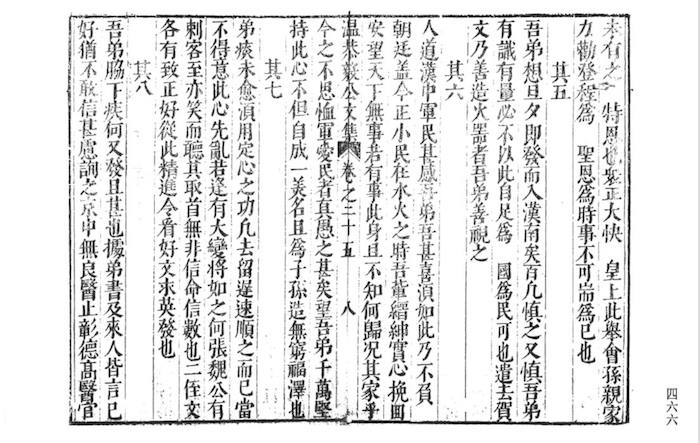 未有之 特恩也衮正大快 皇上此舉會孫親家
力勸登程爲 聖恩爲時事不可耑爲已也
其五
吾弟想旦夕即發而入漢南矣百凡愼之又愼吾弟
有識有量必不以此自足爲 國爲民可也遣去賀
文乃善造火器者吾弟善視之
其六
人道漢中軍民甚感吾弟吾甚喜湏如此乃不負
朝廷蓋今正小民在水火之時吾輩縉紳實心挽囬
安望天下無事若有事此身且不知何歸况其家乎
温恭毅公文集 卷之二十五 八
今之不思恤軍愛民者眞愚之甚矣望吾弟千萬堅
持此心不但自成一美名且爲子孫造無窮福澤也
其七
弟痰未愈湏用定心之功凢去留遲速順之而已當
不得意此心先亂若逢有大變將如之何張魏公有
刺客至亦笑而聽其取首無非信命信數也二侄文
各有致正好從此精進令看好文求英發也
其八
吾弟脇下疾何又發且甚也據弟書及來人皆言已
好猶不敢信甚慮詢之京中無良醫止彰德高醫官
四六六